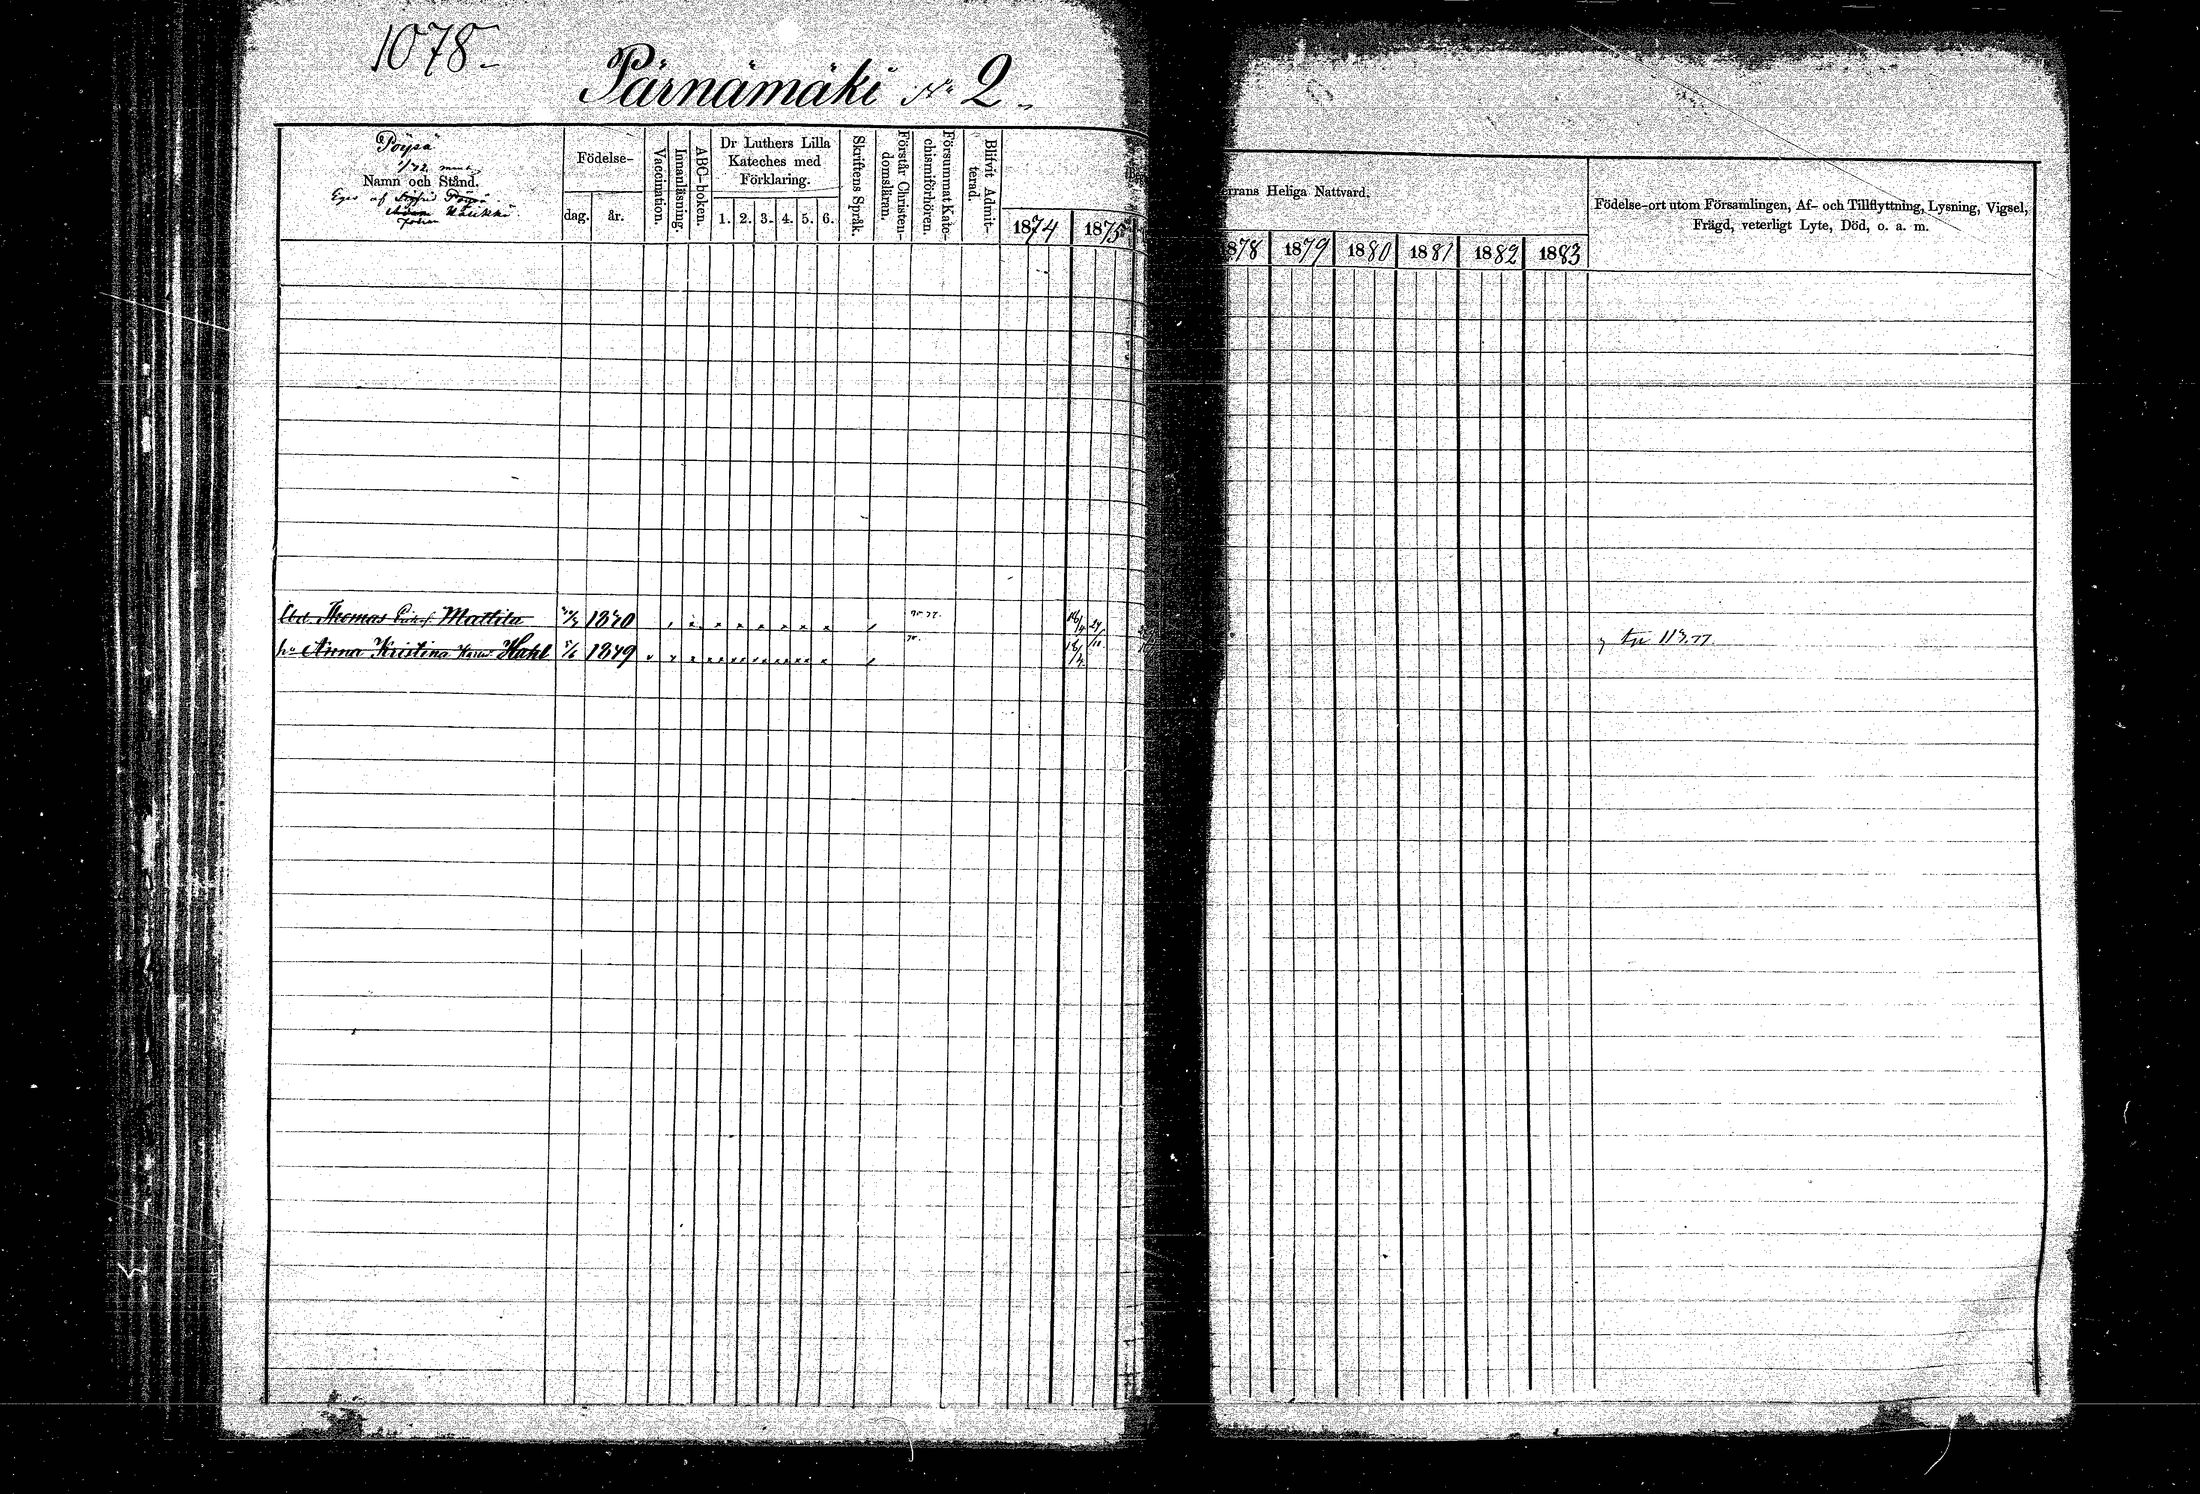 1078
Pärnämäki No 2
Pöysä
1/72 mant.
Namn och Stånd.
Eges af Sigfrid Pöysä
Födelse-
dag. år.
Vaccination.
Innanläsning.
ABC-boken.
Dr Luthers Lilla
Kateches med
Förklaring.
1. 2. 3. 4. 5. 6.
Skriftens Språk.
Förstår Christen-
domsläran.
Försummat Kate-
chismiförhören.
Blifvit Admit-
terad.
1874 1875
errans Heliga Nattvard.
878 1879 1880 1881 1882 1883
Födelse-ort utom Församlingen, Af- och Tillflyttning, Lysning, Vigsel,
Frägd, veterligt Lyte, Död, o. a. m.
Thomas Mattila 1840
Anna Kristina Hahl 1849
113.77.